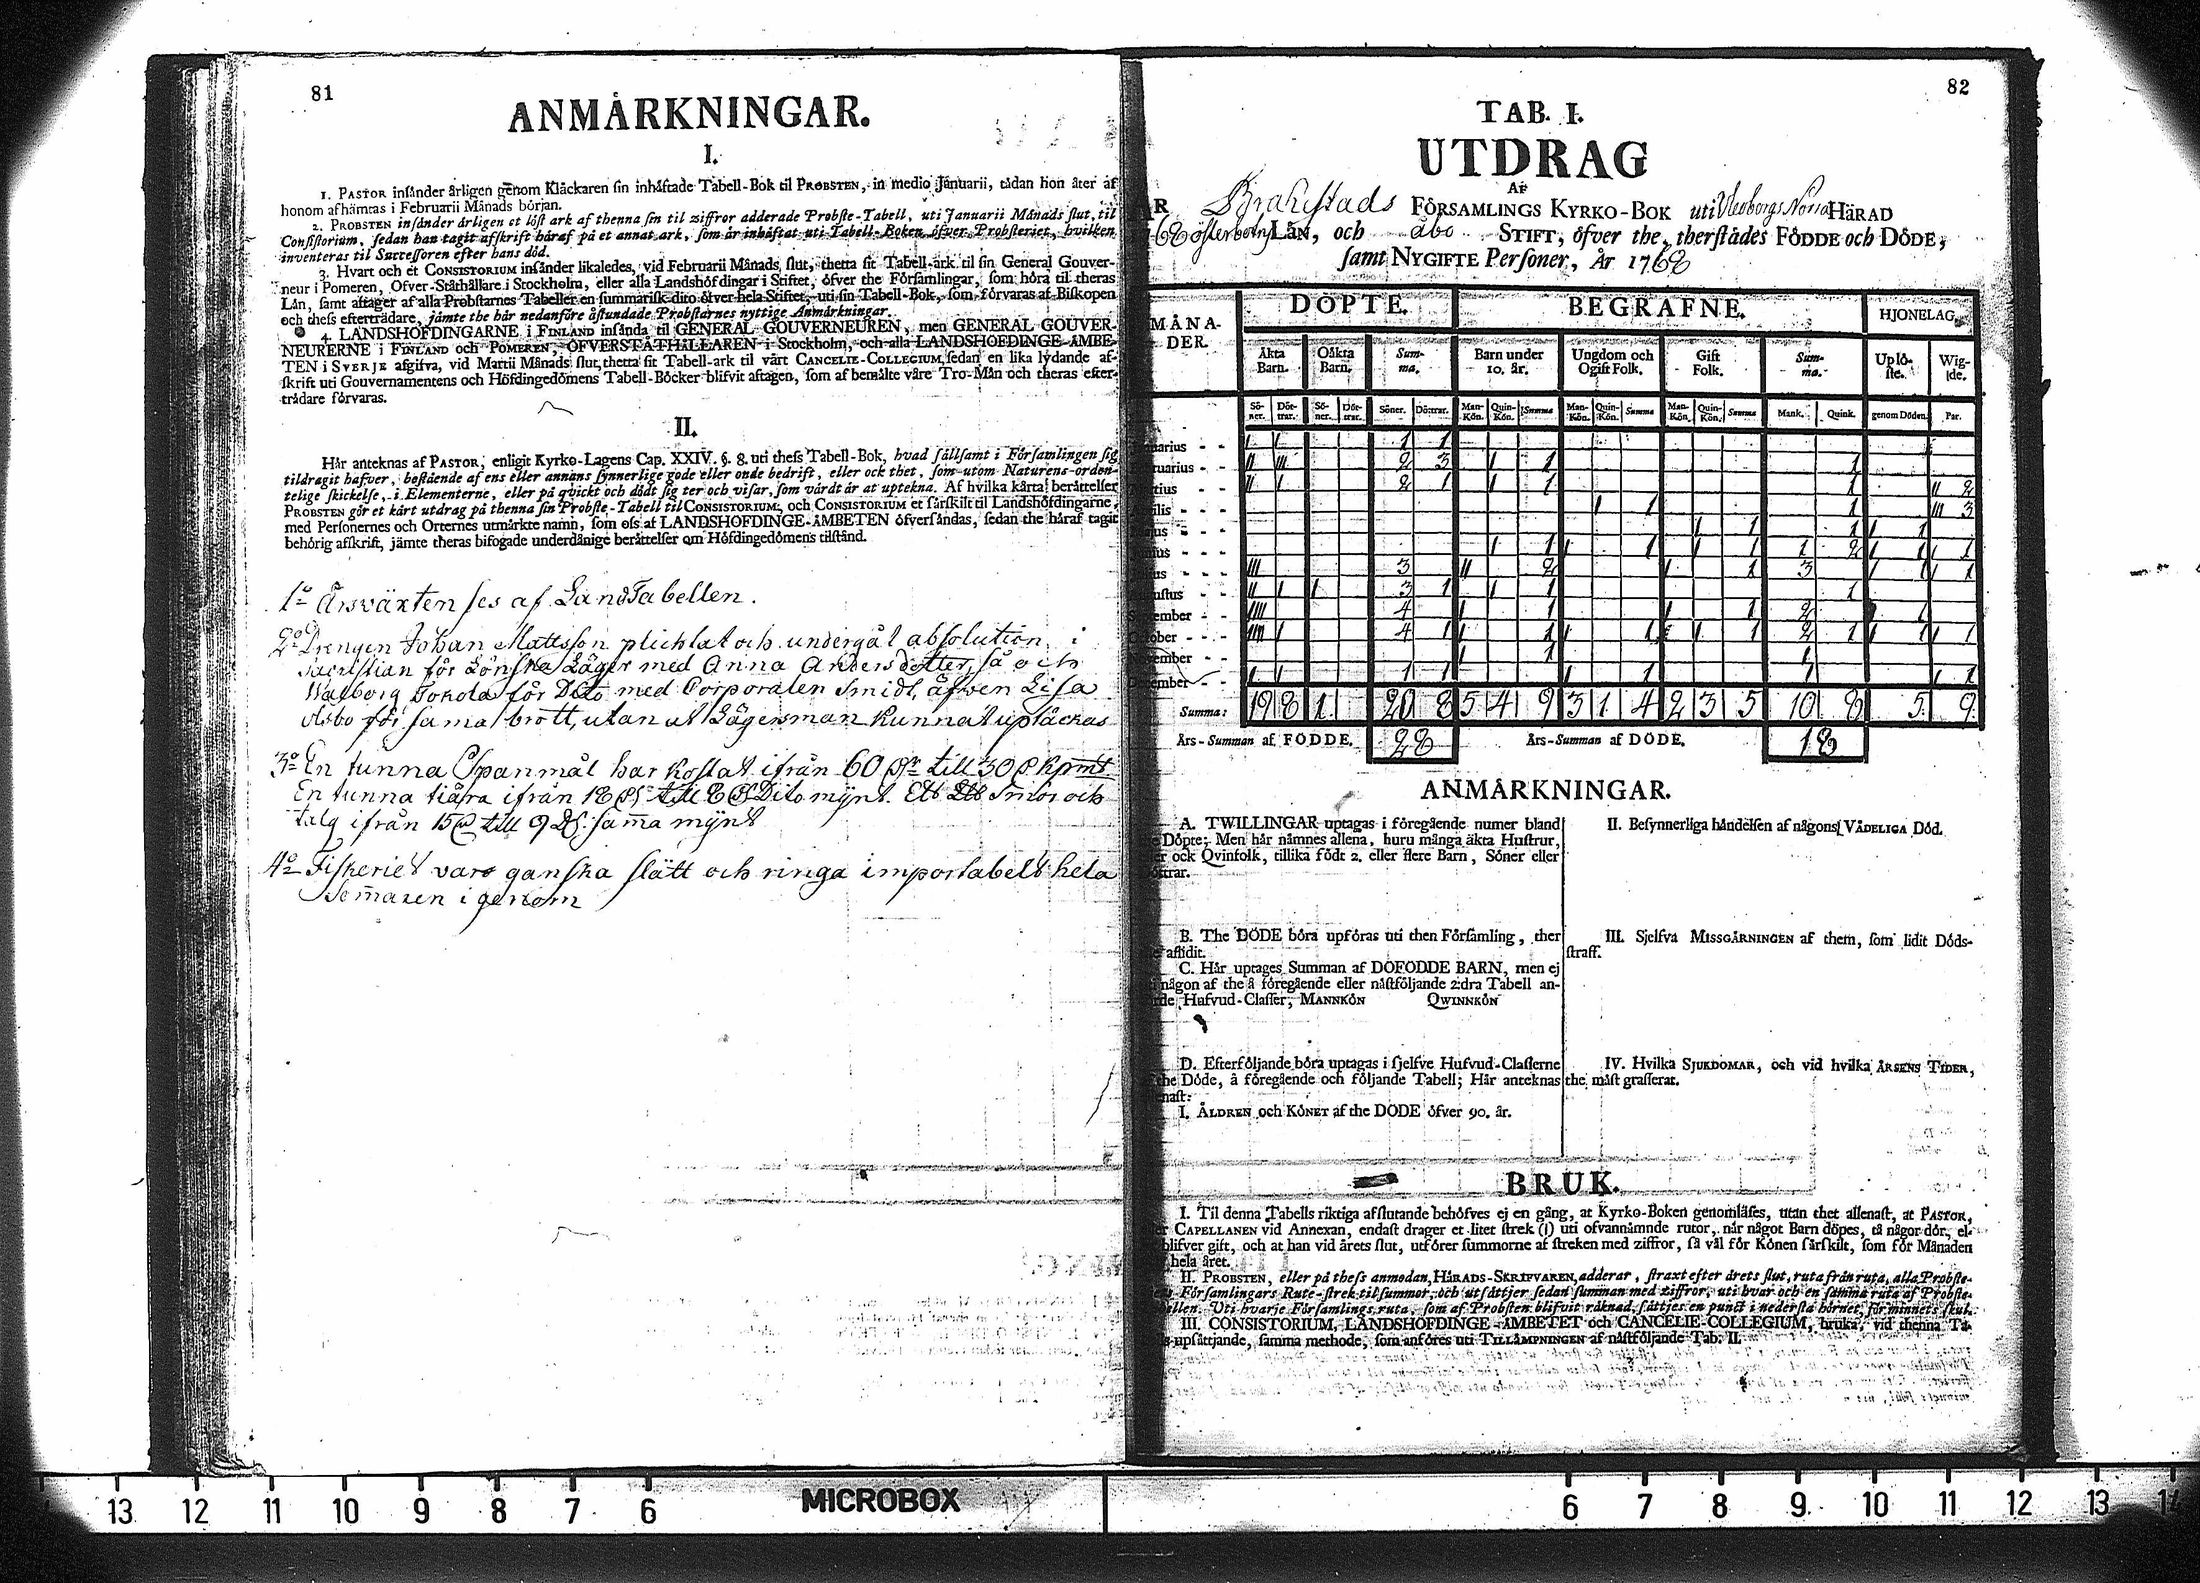 81
ANMÅRKNINGAR.
I.
1. PASTOR insånder årligen genom Klåckaren sin inhåftade Tabell-Bok til PROBSTEN, in medio Januarii, tådan hon åter af
honom afhämtas i Februarii Månads början.
2. PROBSTEN insånder årligen et löst ark af thenna sin til ziffror adderade Probste-Tabell, uti Januarii Månads slut, til
Consistorium, sedan han tagit afskrift håraf på et annat ark, som år inhåftat uti Tabell-Boken öfver Probsteriet, hvilken
inventeras til Successoren efter hans död.
3. Hvart och et CONSISTORIUM insånder likaledes, vid Februarii Månads slut, thetta sit Tabell-ark til sin General Gouver-
neur i Pomeren, Öfver-Ståthållare i Stockholm, eller alla Landshöfdingar i Stiftet, öfver the Församlingar, som höra til theras
Lån, samt aftager af alla Probstarnes Tabeller en summarisk dito öfver hela Stiftet, uti sin Tabell-Bok, som förvaras af Biskopen
och thess efterträdare, jämte the hår nedanföre åstundade Probstarnes nyttige Anmårkningar.
4. LANDSHÖFDINGARNE i FINLAND insånda til GENERAL GOUVERNEUREN, men GENERAL GOUVER-
NEURERNE i FINLAND och POMEREN, ÖFVERSTÅTHÅLLAREN i Stockholm, och alla LANDSHÖFDINGE-ÅMBE-
TEN i SVERJE afgifva, vid Martii Månads slut, thetta sit Tabell-ark til vårt CANCELIE-COLLEGIUM, sedan en lika lydande af-
skrift uti Gouvernamentens och Höfdingedömens Tabell-Böcker blifvit aftagen, som af bemälte våre Tro-Mån och theras efter-
trädare förvaras.
II.
Hår anteknas af PASTOR, enligit Kyrko-Lagens Cap. XXIV. §. 8. uti thess Tabell-Bok, hvad sållsamt i Församlingen sig
tildragit hafver, bestående af ens eller annans synnerlige gode eller onde bedrift, eller ock thet, som utom Naturens orden-
telige skickelse, i Elementerne, eller på qvickt och dödt sig ter och visar, som vårdt år at uptekna. Af hvilka kårta beråttelser
PROBSTEN gör et kårt utdrag på thenna sin Probste-Tabell til CONSISTORIUM, och CONSISTORIUM et sårskilt til Landshöfdingarne,
med Personernes och Orternes utmårkte namn, som oss af LANDSHÖFDINGE-ÅMBETEN öfversåndas, sedan the håraf tagit
behörig afskrift, jämte theras bifogade underdånige beråttelser om Höfdingedömens tilstånd.
1o Årsväxten ses af LandTabellen.
2o Drengen Johan Mattsson plichtat och undergåt absolution i
Sacristian för Lönska Läger med Anna Andersdotter, så och
Walborg Tokola för Dito med Corporalen Smidt, äfven Lisa
Asbo för sama brott, utan at Lägersman kunnat uptäckas
3o En tunna Spanmål har kostat ifrån 60 till 30
En tunna tiära ifrån 18 till 8 Dito mynt. Smör och
Talg ifrån 15 till 9 sama mynt
4o Fiskeriet vars ganska slätt och ringa importabelt hela
Somaren igenom
82
TAB. I.
UTDRAG
AF
Brahestads FÖRSAMLINGS KYRKO-BOK uti Uleoborgs Norra HÄRAD
Österbotns LÅN, och Åbo STIFT, öfver the, therstädes FÖDDE och DÖDE,
samt NYGIFTE Personer, År 1768
MÅNA-
DER.
DÖPTE. BEGRAFNE. HJONELAG.
Åkta Barn. Oåkta Barn. Sum-ma. Barn under 10. år. Ungdom och Ogift Folk. Gift Folk. Sum-ma. Uplö-ste. Wig-de.
Sö-ner. Döt-trar. Sö-ner. Döt-trar. Söner. Döttrar. Man-Kön. Quin-Kön. Summa Man-Kön. Quin-Kön. Summa Man-Kön. Quin-Kön. Summa Mank. Quink. genom Döden. Par.
Summa: 19 8 1 20 8 5 4 9 3 1 4 2 3 5 10 8 5 9
Års-Summan af FÖDDE. 28 Års-Summan af DÖDE. 18
ANMÅRKNINGAR.
A. TWILLINGAR uptagas i föregående numer bland
Döpte; Men hår nämnes allena, huru många åkta Hustrur,
ock Qvinfolk, tillika födt 2. eller flere Barn, Söner eller
B. The DÖDE böra upföras uti then Församling, ther
aflidit.
C. Hår uptages Summan af DÖFÖDDE BARN, men ej
någon af the å föregående eller nåstföljande 2:dra Tabell an-
Hufvud-Classer; MANNKÖN QWINNKÖN
D. Efterföljande böra uptagas i sjelfve Hufvud-Classerne
the Döde, å föregående och följande Tabell; Hår anteknas
I. ÅLDREN och KÖNET af the DÖDE öfver 90. år.
II. Besynnerliga håndelsen af någons VÅDELIGA Död.
III. Sjelfva MISSGÅRNINGEN af them, som lidit Döds-
straff.
IV. Hvilka SJUKDOMAR, och vid hvilka ÅRSENS TIDER,
the måst grasserat.
BRUK.
I. Til denna Tabells riktiga afslutande behöfves ej en gång, at Kyrko-Boken genomläses, utan thet allenast, at PASTOR,
CAPELLANEN vid Annexan, endast drager et litet strek (I) uti ofvannämnde rutor, når något Barn döpes, tå någor dör, el-
blifver gift, och at han vid årets slut, utförer summorne af streken med ziffror, så vål för Könen sårskilt, som för Månaden
hela året.
II. PROBSTEN, eller på thess anmodan, HÅRADS-SKRIFVAREN, adderar, straxt efter årets slut, ruta från ruta, alla Probste-
Församlingars Rute-strek til summor, och utsåttjer sedan summan med ziffror, uti hvar och en samma ruta af Probste-
Uti hvarje Församlings ruta, som af Probsten blifvit råknad, såttjes en punct i nedersta hörnet, för minnets skul.
III. CONSISTORIUM, LANDSHÖFDINGE-ÅMBETET och CANCELIE-COLLEGIUM, bruka, vid thenna Ta-
upsåttjande, samma methode, som anföres uti TILLÅMPNINGEN af nåstföljande Tab. II.
13 12 11 10 9 8 7 6 MICROBOX 6 7 8 9 10 11 12 13 14